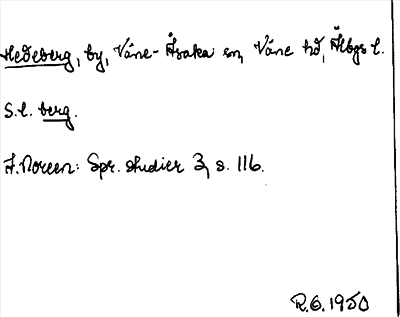 Hedeberg, by, Väne-Åsaka sn, Väne hd, Älbgs l.
S.l. berg.
A. Noreen: Spr. studier 3, s. 116.
R.G. 1950